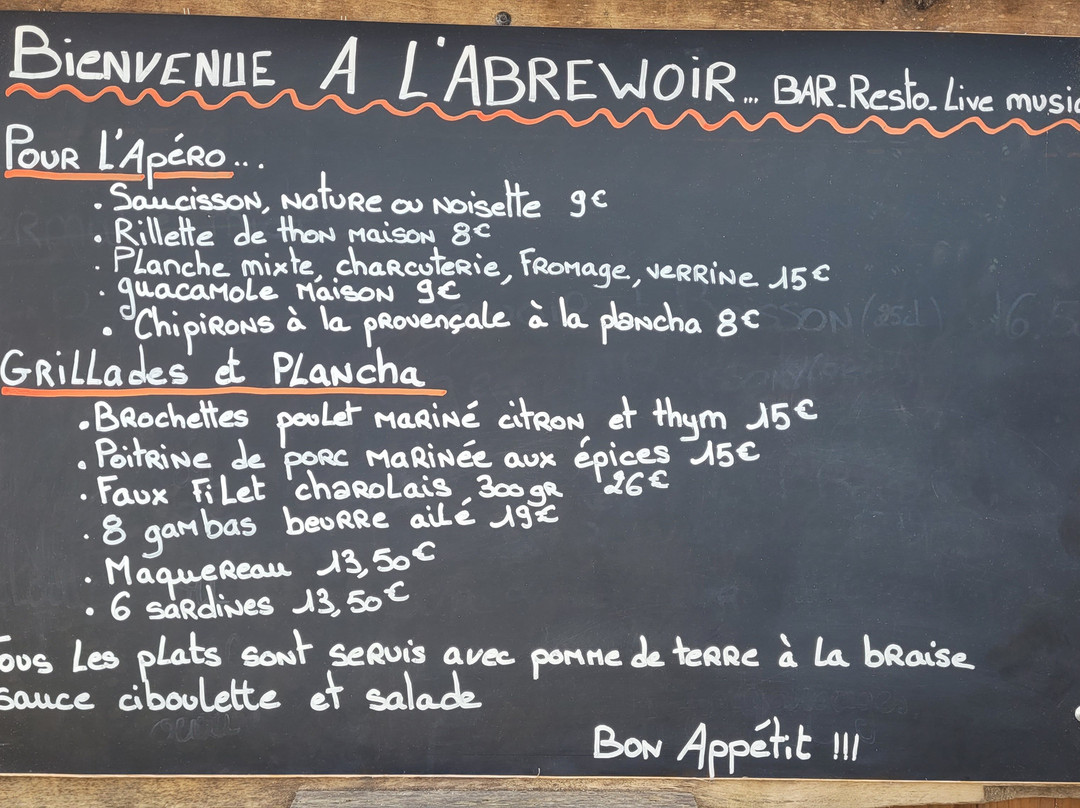 Bienvenue A L'Abrewoir... BAR-Resto-Live music
Pour L'Apéro...
. Saucisson, nature ou noisette 9€
. Rillette de thon maison 8€
. Planche mixte, charcuterie, fromage, verrine 15€
. guacamole maison 9€
. Chipirons à la provençale à la plancha 8€
Grillades et Plancha
. Brochettes poulet mariné citron et thym 15€
. Poitrine de porc marinée aux épices 15€
. Faux filet charolais, 300gr 26€
. 8 gambas beurre ailé 19€
. Maquereau 13,50€
. 6 sardines 13,50€
Tous les plats sont servis avec pomme de terre à la braise
sauce ciboulette et salade
Bon Appétit !!!